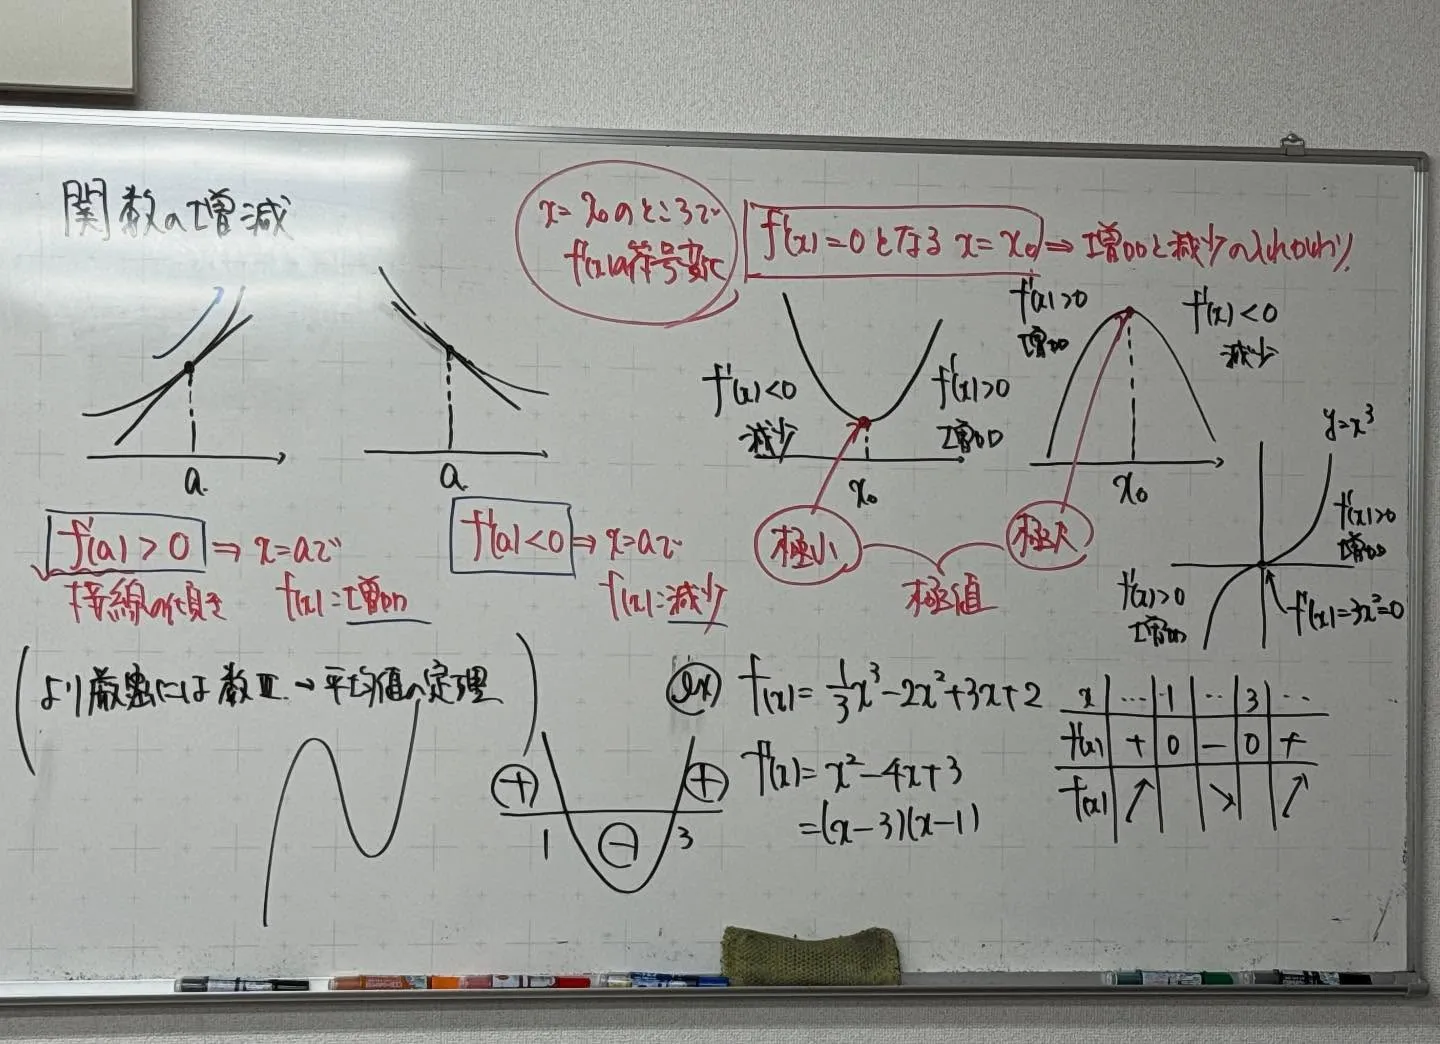 関数の増減
x=x₀のところで
f'(x)の符号変化
f'(x)=0となる x=x₀ ⇒ 増加と減少の入れかわり
a
a
f'(x)<0
減少
f'(x)>0
増加
x₀
f'(x)>0
増加
f'(x)<0
減少
x₀
y=x³
f'(x)>0
増加
f'(x)>0
増加
f'(x)=3x²=0
f'(a)>0 ⇒ x=aで
接線の傾き f(x):増加
f'(a)<0 ⇒ x=aで
f(x):減少
極小
極大
極値
(より厳密には数Ⅲ→平均値の定理)
+
−
+
1
3
ex) f(x)=1/3x³−2x²+3x+2
f'(x)=x²−4x+3
=(x−3)(x−1)
x … 1 … 3 …
f'(x) + 0 − 0 +
f(x) ↗ ↘ ↗